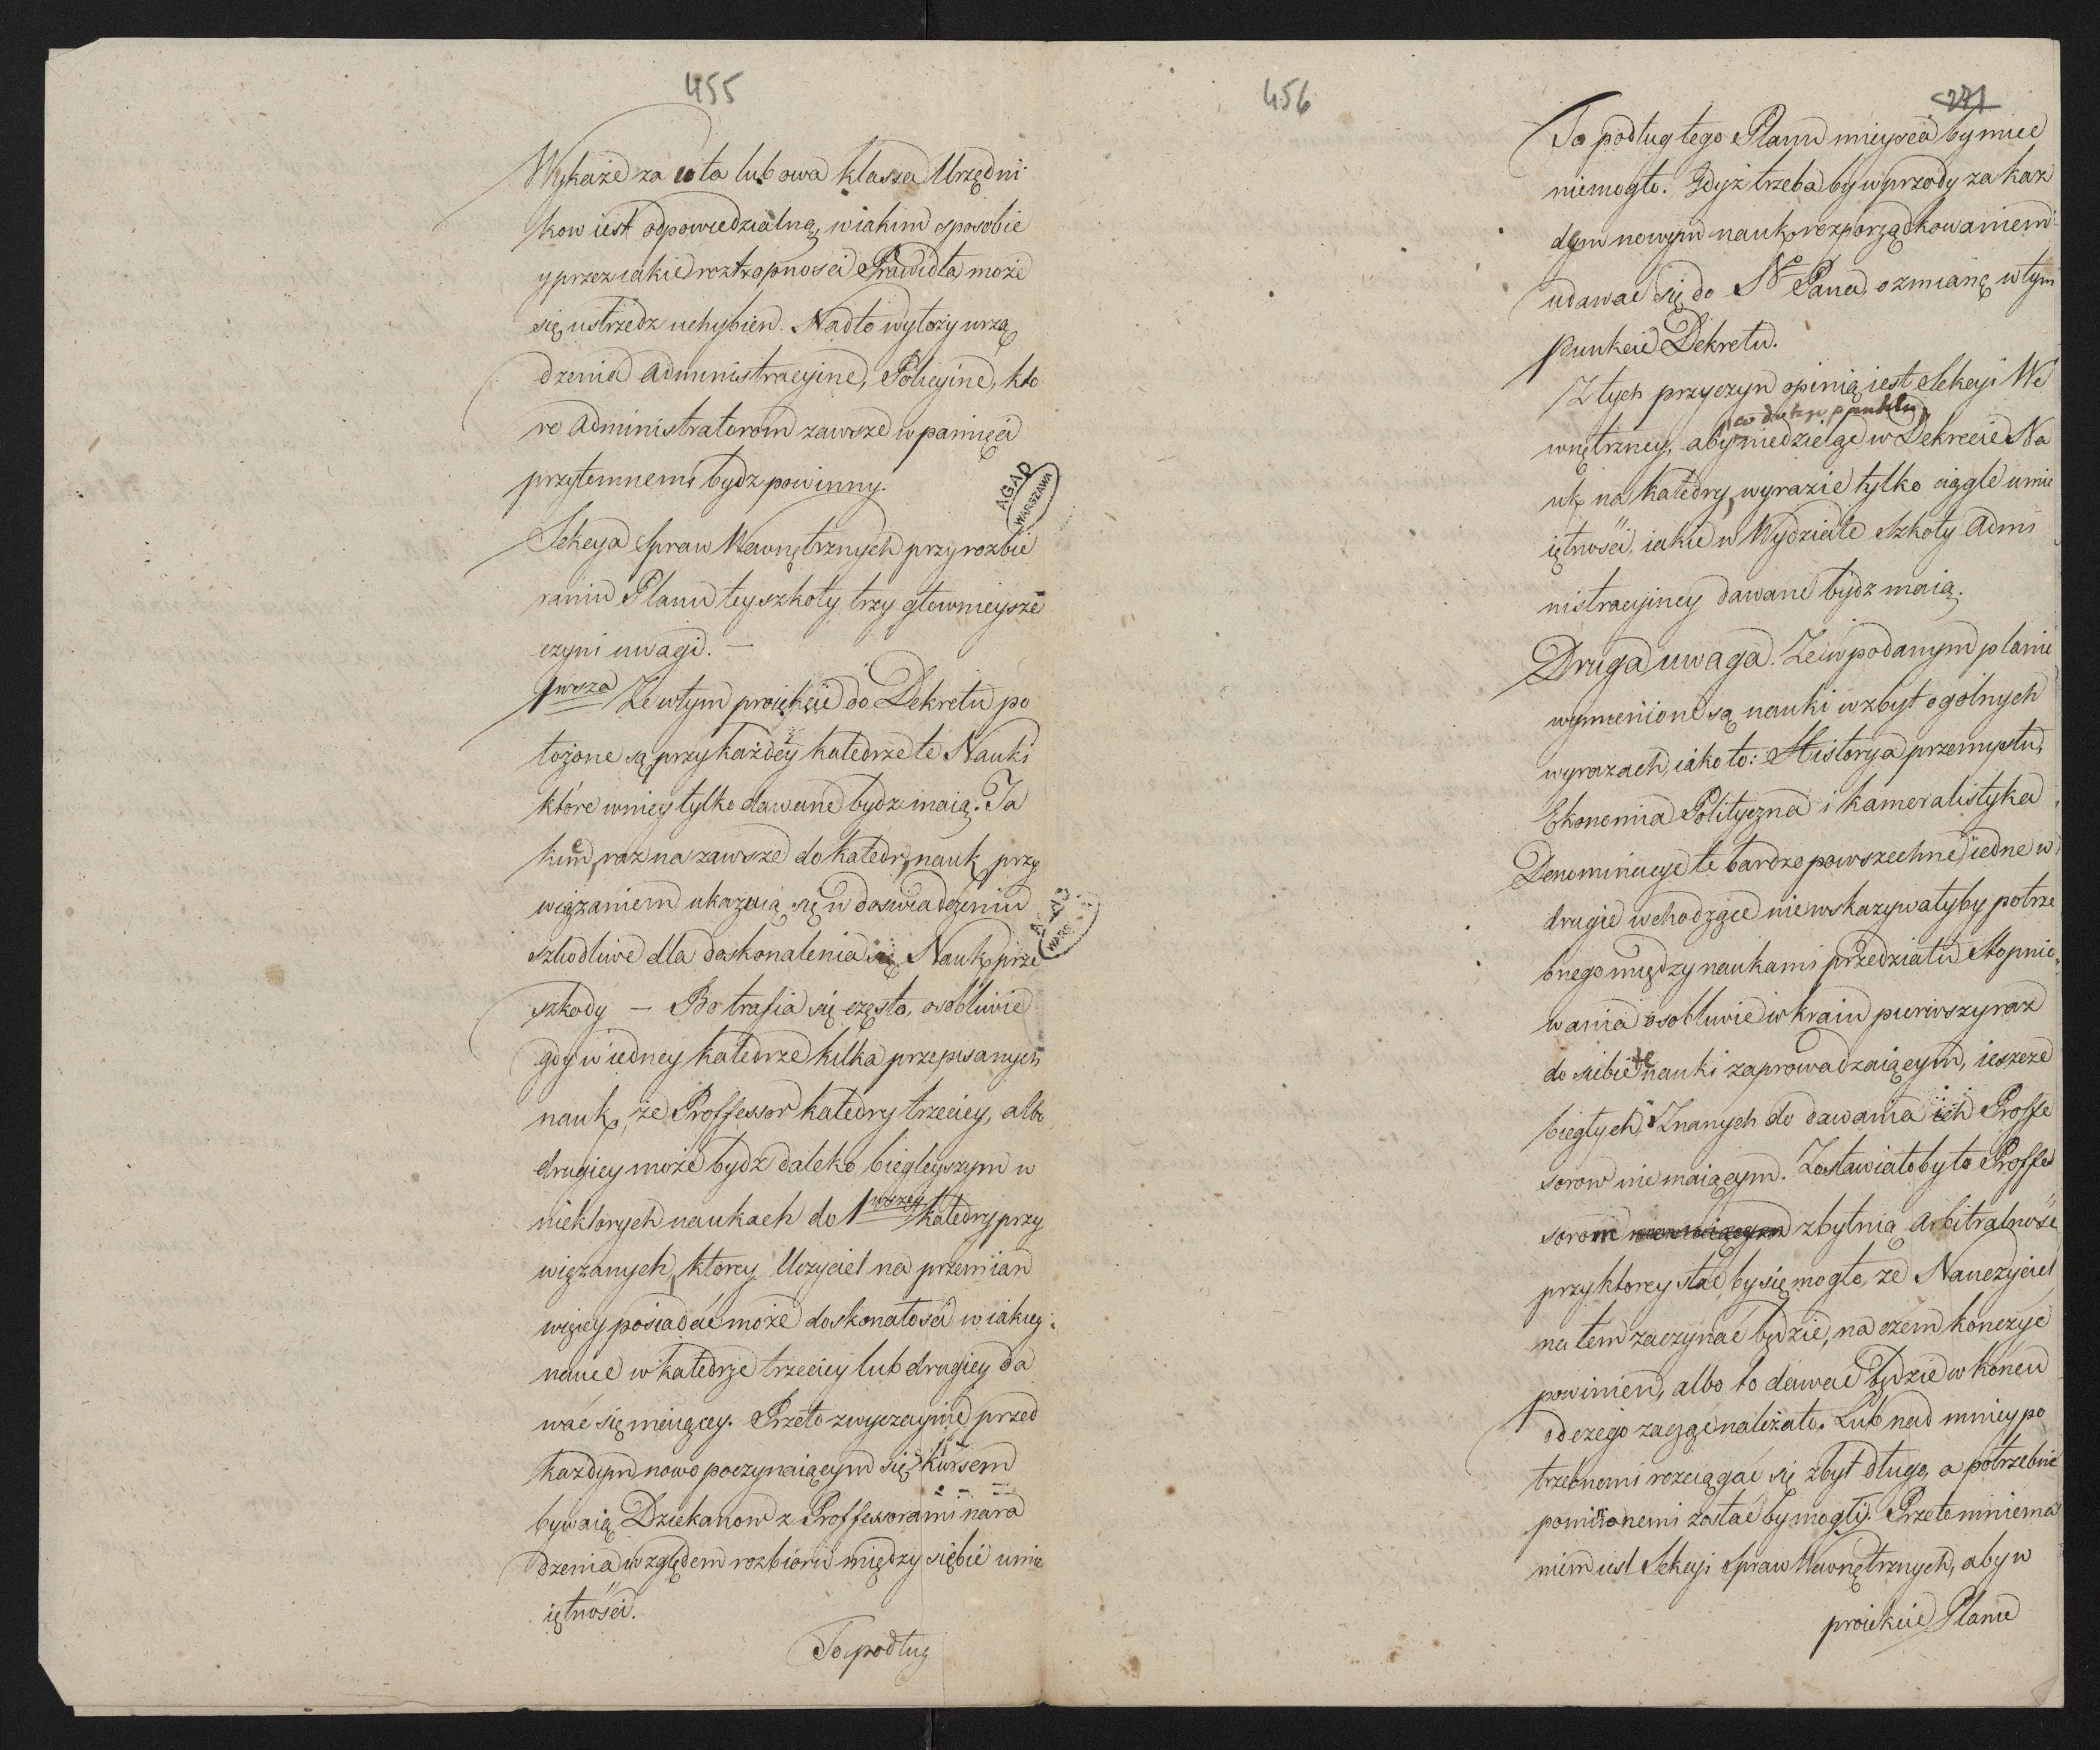 455
Wykaże za co ta lub owa klassa Urzędni
kow iest odpowiedzialną, w iakim sposobie
y przez iakie roztropnosci Prawidła może
się ustrzedz uchybien. Nadto wyłoży urzą
dzenia Administracyine, Policyine, kto
re Administratorom zawsze w pamięci
przytomnemi bydz powinny.
Sekcya Spraw Wewnętrznych przy rozbie
raniu Planu tey szkoły trzy głownieysze
czyni uwagi. —
1wsza Ze w tym proiekcie do Dekretu po
łożone są przy każdey katedrze te Nauki
które w niey tylko dawane bydz maią. Ta
kiem raz na zawsze do katedr nauk przy
wiązaniem ukazuią się w doswiadczeniu
szkodliwe dla doskonalenia się Nauk prze
szkody — Bo trafia się często, osobliwie
gdy w iedney katedrze kilka przepisanych
nauk, że Proffessor katedry trzeciey, albo
drugiey może bydz daleko biegleyszym w
niektorych naukach do 1wszey katedry przy
wiązanych, ktorey Uczyciel na przemian
więcey posiadać może doskonałości w iakiey
nauce w katedrze trzeciey lub drugiey da
wać się maiącey. Przeto zwyczayine przed
każdym nowo poczynaiącym się kursem
bywaią Dziekanow z Proffessorami nara
dzenia względem rozbioru między siębie umie
iętności.
To podług
456
271
To podług tego Planu mieysca by miec
niemogło. Gdyż trzeba by wprzody za kaz
dym nowym nauk rozporządkowaniem
udawać się do No Pana, o zmianę w tym
punkcie Dekretu.
Z tych przyczyn opinią iest Sekcyi We
co do tego punktu
wnętrzney, aby niedzieląc w Dekrecie Na
uk na katedry, wyrazić tylko ciągle umie
iętności, iakie w Wydziale Szkoły Admi
nistracyiney dawane bydz maią.
Druga uwaga. Ze w podanym planie
wymienione są nauki w zbyt ogólnych
wyrazach, iako to: Historya przemysłu,
Ekonomia Polityczna i kameralistyka
Denominacye te bardzo powszechne, iedne w
drugie wchodzące nie wskazywałyby potrze
bnego między naukami przedziału Stopnio
wania osobliwie w kraiu pierwszy raz
do siebie te nauki zaprowadzaiącym, ieszcze
biegłych i Znanych do dawania ich Proffe
sorow nie maiącym. Zostawiałoby to Proffes
sorom zbytnią Arbitralność
przy ktorey stać by się mogło, ze Nauczyciel
na tem zaczynać będzie, na czem kończyć
powinien, albo to dawać będzie w końcu
od czego zacząć należało. Lub nad mniey po
trzebnemi rozciągać się zbyt długo, a potrzebne
pominonemi zostać by mogły. Przeto mniema
niem iest Sekcyi Spraw Wewnętrznych, aby w
proiekcie Planu
AGAD
WARSZAWA